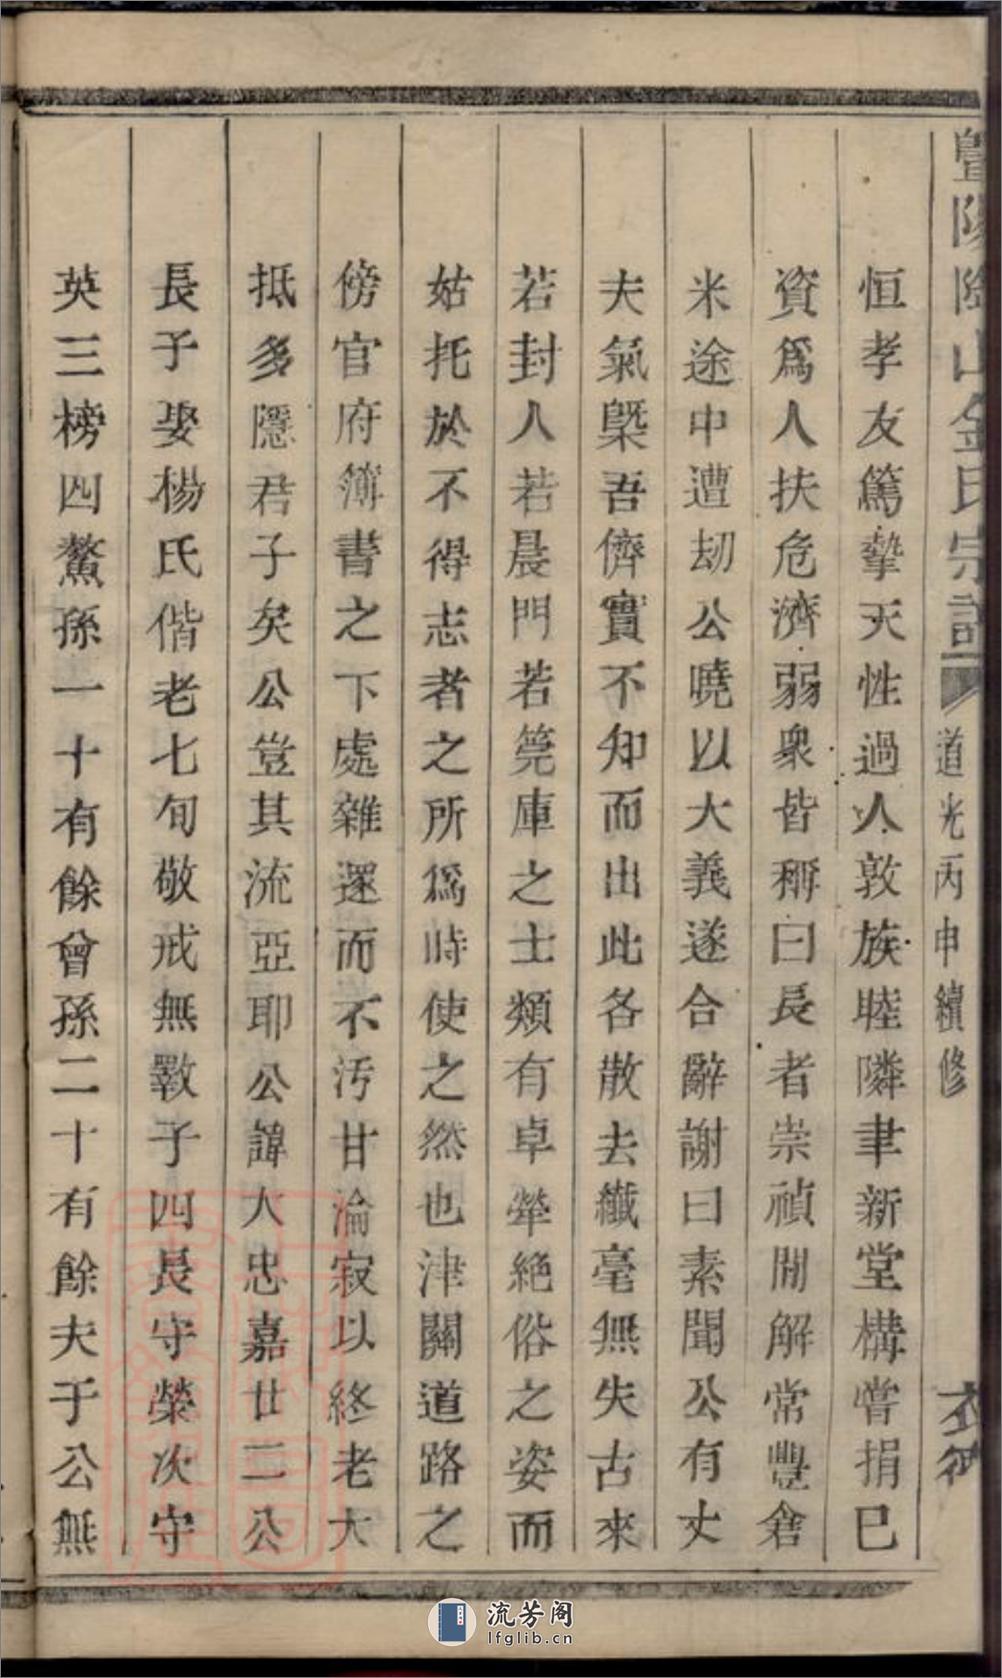 暨陽陰山金氏宗譜 道光丙申續修
恒孝友篤摯天性過人敦族睦隣聿新堂構嘗捐已
資爲人扶危濟弱衆皆稱曰長者崇禎間解常豐倉
米途中遭刧公曉以大義遂合辭謝曰素聞公有丈
夫氣槩吾儕實不知而出此各散去纖毫無失古來
若封人若晨門若筦庫之士類有卓犖絶俗之姿而
姑托於不得志者之所爲時使之然也津關道路之
傍官府簿書之下處雜遝而不汚甘淪寂以終老大
抵多隱君子矣公豈其流亞耶公諱大忠嘉廿二公
長子娶楊氏偕老七旬敬戒無斁子四長守榮次守
英三榜四鰲孫一十有餘曾孫二十有餘夫于公無
流芳阁
lfglib.cn